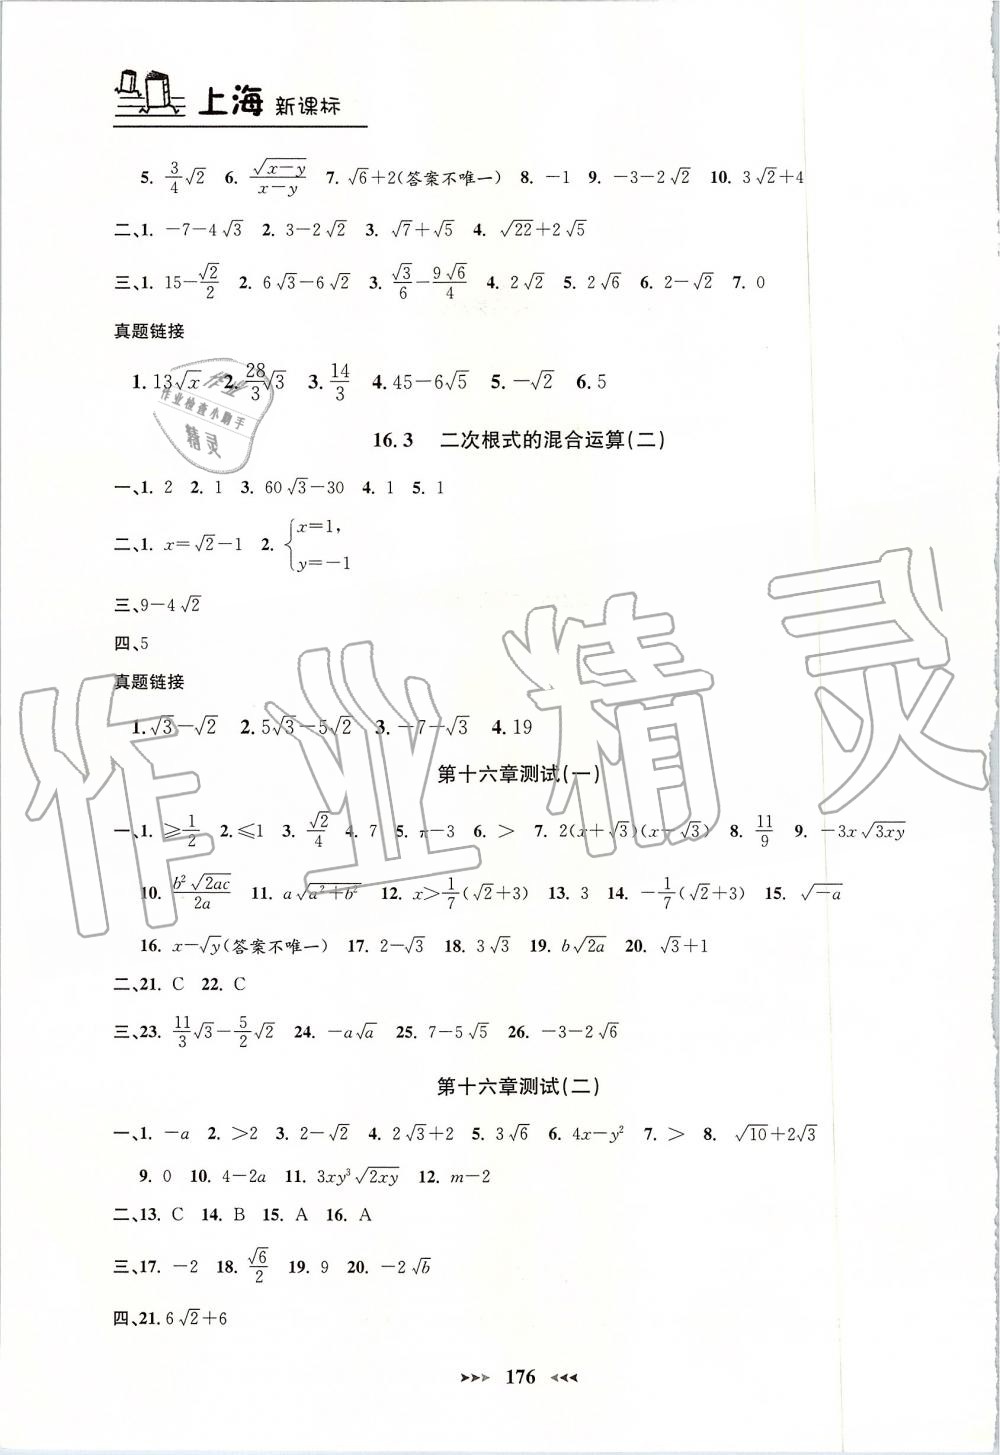 上海 新课标
5. 3/4√2 6. √(x-y)/(x-y) 7. √6+2(答案不唯一) 8. -1 9. -3-2√2 10. 3√2+4
二、1. -7-4√3 2. 3-2√2 3. √7+√5 4. √22+2√5
三、1. 15-√2/2 2. 6√3-6√2 3. √3/6-9√6/4 4. 2√2 5. 2√6 6. 2-√2 7. 0
真题链接
1. 13√x 2. 28/3√3 3. 14/3 4. 45-6√5 5. -√2 6. 5
作业
作业检查小助手
精灵
16.3 二次根式的混合运算(二)
一、1. 2 2. 1 3. 60√3-30 4. 1 5. 1
二、1. x=√2-1 2. {x=1,
y=-1
三、9-4√2
四、5
真题链接
1. √3-√2 2. 5√3-5√2 3. -7-√3 4. 19
第十六章测试(一)
一、1. ≥1/2 2. ≤1 3. √2/4 4. 7 5. π-3 6. > 7. 2(x+√3)(x-√3) 8. 11/9 9. -3x√3xy
10. b²√2ac/2a 11. a√(a²+b²) 12. x>1/7(√2+3) 13. 3 14. -1/7(√2+3) 15. √-a
16. x-√y(答案不唯一) 17. 2-√3 18. 3√3 19. b√2a 20. √3+1
二、21. C 22. C
三、23. 11/3√3-5/2√2 24. -a√a 25. 7-5√5 26. -3-2√6
第十六章测试(二)
一、1. -a 2. >2 3. 2-√2 4. 2√3+2 5. 3√6 6. 4x-y² 7. > 8. √10+2√3
9. 0 10. 4-2a 11. 3xy³√2xy 12. m-2
二、13. C 14. B 15. A 16. A
三、17. -2 18. √6/2 19. 9 20. -2√b
四、21. 6√2+6
176
作业精灵